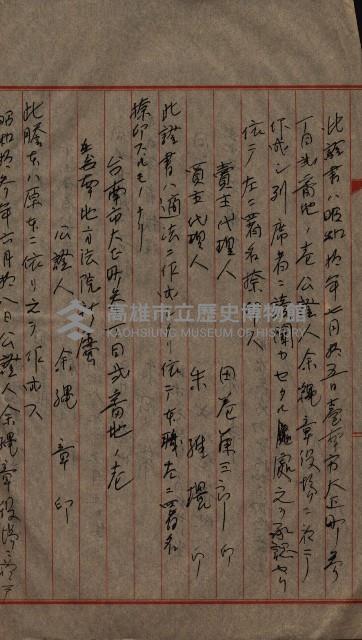 此證書ハ昭和拾年七月拾五日臺南市大正町參
丁目貳番地ノ壱公證人余縄章役場ニ於テ
作成シ列席者ニ讀聞カセタル處之ヲ承認セリ
依テ左ニ署名捺
賣主代理人 田 三郎 印
買主代理人 朱 維 印
此證書ハ適法ニ作成 依テ本職左ニ署名
捺印スルモノナリ
台南市大正町 丁目貳番地ノ壱
臺南地方法院所屬
公證人 余縄 章 印
此謄本ハ原本ニ依リ之ヲ作成ス
昭和拾 年六月拾八日公證人余縄章役場ニ於テ
高雄市立歷史博物館
KAOHSIUNG MUSEUM OF HISTORY